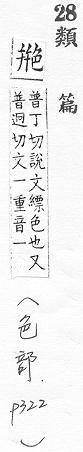 28
類
篇
艵
普丁切說文縹色也又
普迥切文一重音一
(色部.
p322)